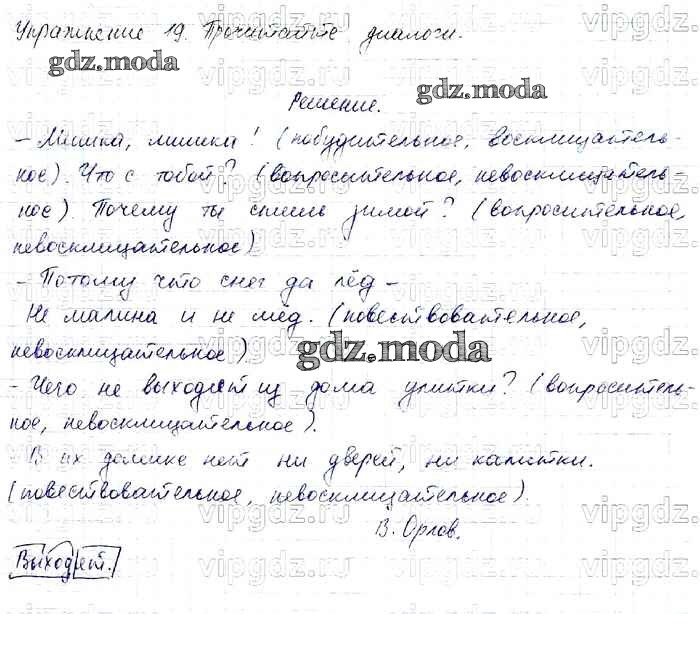 Упражнение 19. Прочитайте диалоги.
gdz.moda
Решение.
gdz.moda
– Мишка, мишка! (побудительное, восклицатель-
ное). Что с тобой? (вопросительное, невосклицатель-
ное). Почему ты спишь зимой? (вопросительное,
невосклицательное)
– Потому что снег да лёд –
Не малина и не мёд. (повествовательное,
невосклицательное).
gdz.moda
– Чего не выходит из дома улитки? (вопроситель-
ное, невосклицательное).
В их домике нет ни дверей, ни калитки.
(повествовательное, невосклицательное).
В. Орлов.
Выходит.
vipgdz.ru